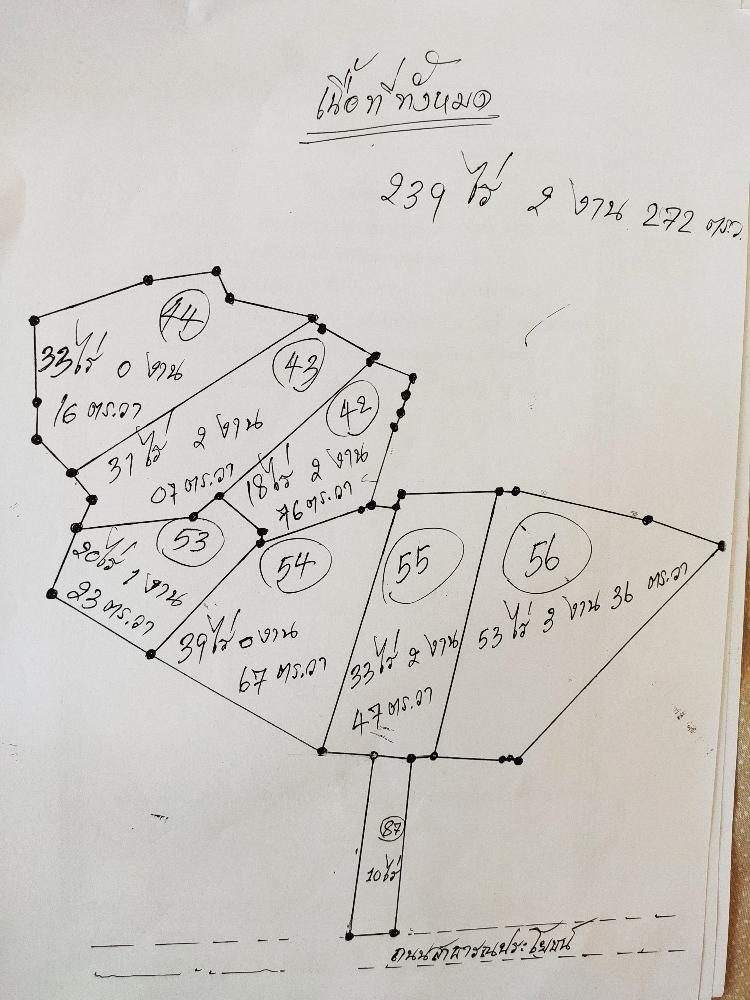 เนื้อที่ทั้งหมด
239 ไร่ 2 งาน 272 ตร.ว.
44
33ไร่ 0 งาน
16 ตร.วา
43
31ไร่ 2 งาน
07 ตร.วา
42
18ไร่ 2 งาน
76 ตร.วา
53
20ไร่ 1 งาน
23 ตร.วา
54
39ไร่ 0 งาน
67 ตร.วา
55
33ไร่ 2 งาน
47 ตร.วา
56
53 ไร่ 3 งาน 36 ตร.วา
87
10ไร่
ถนนสาธารณประโยชน์